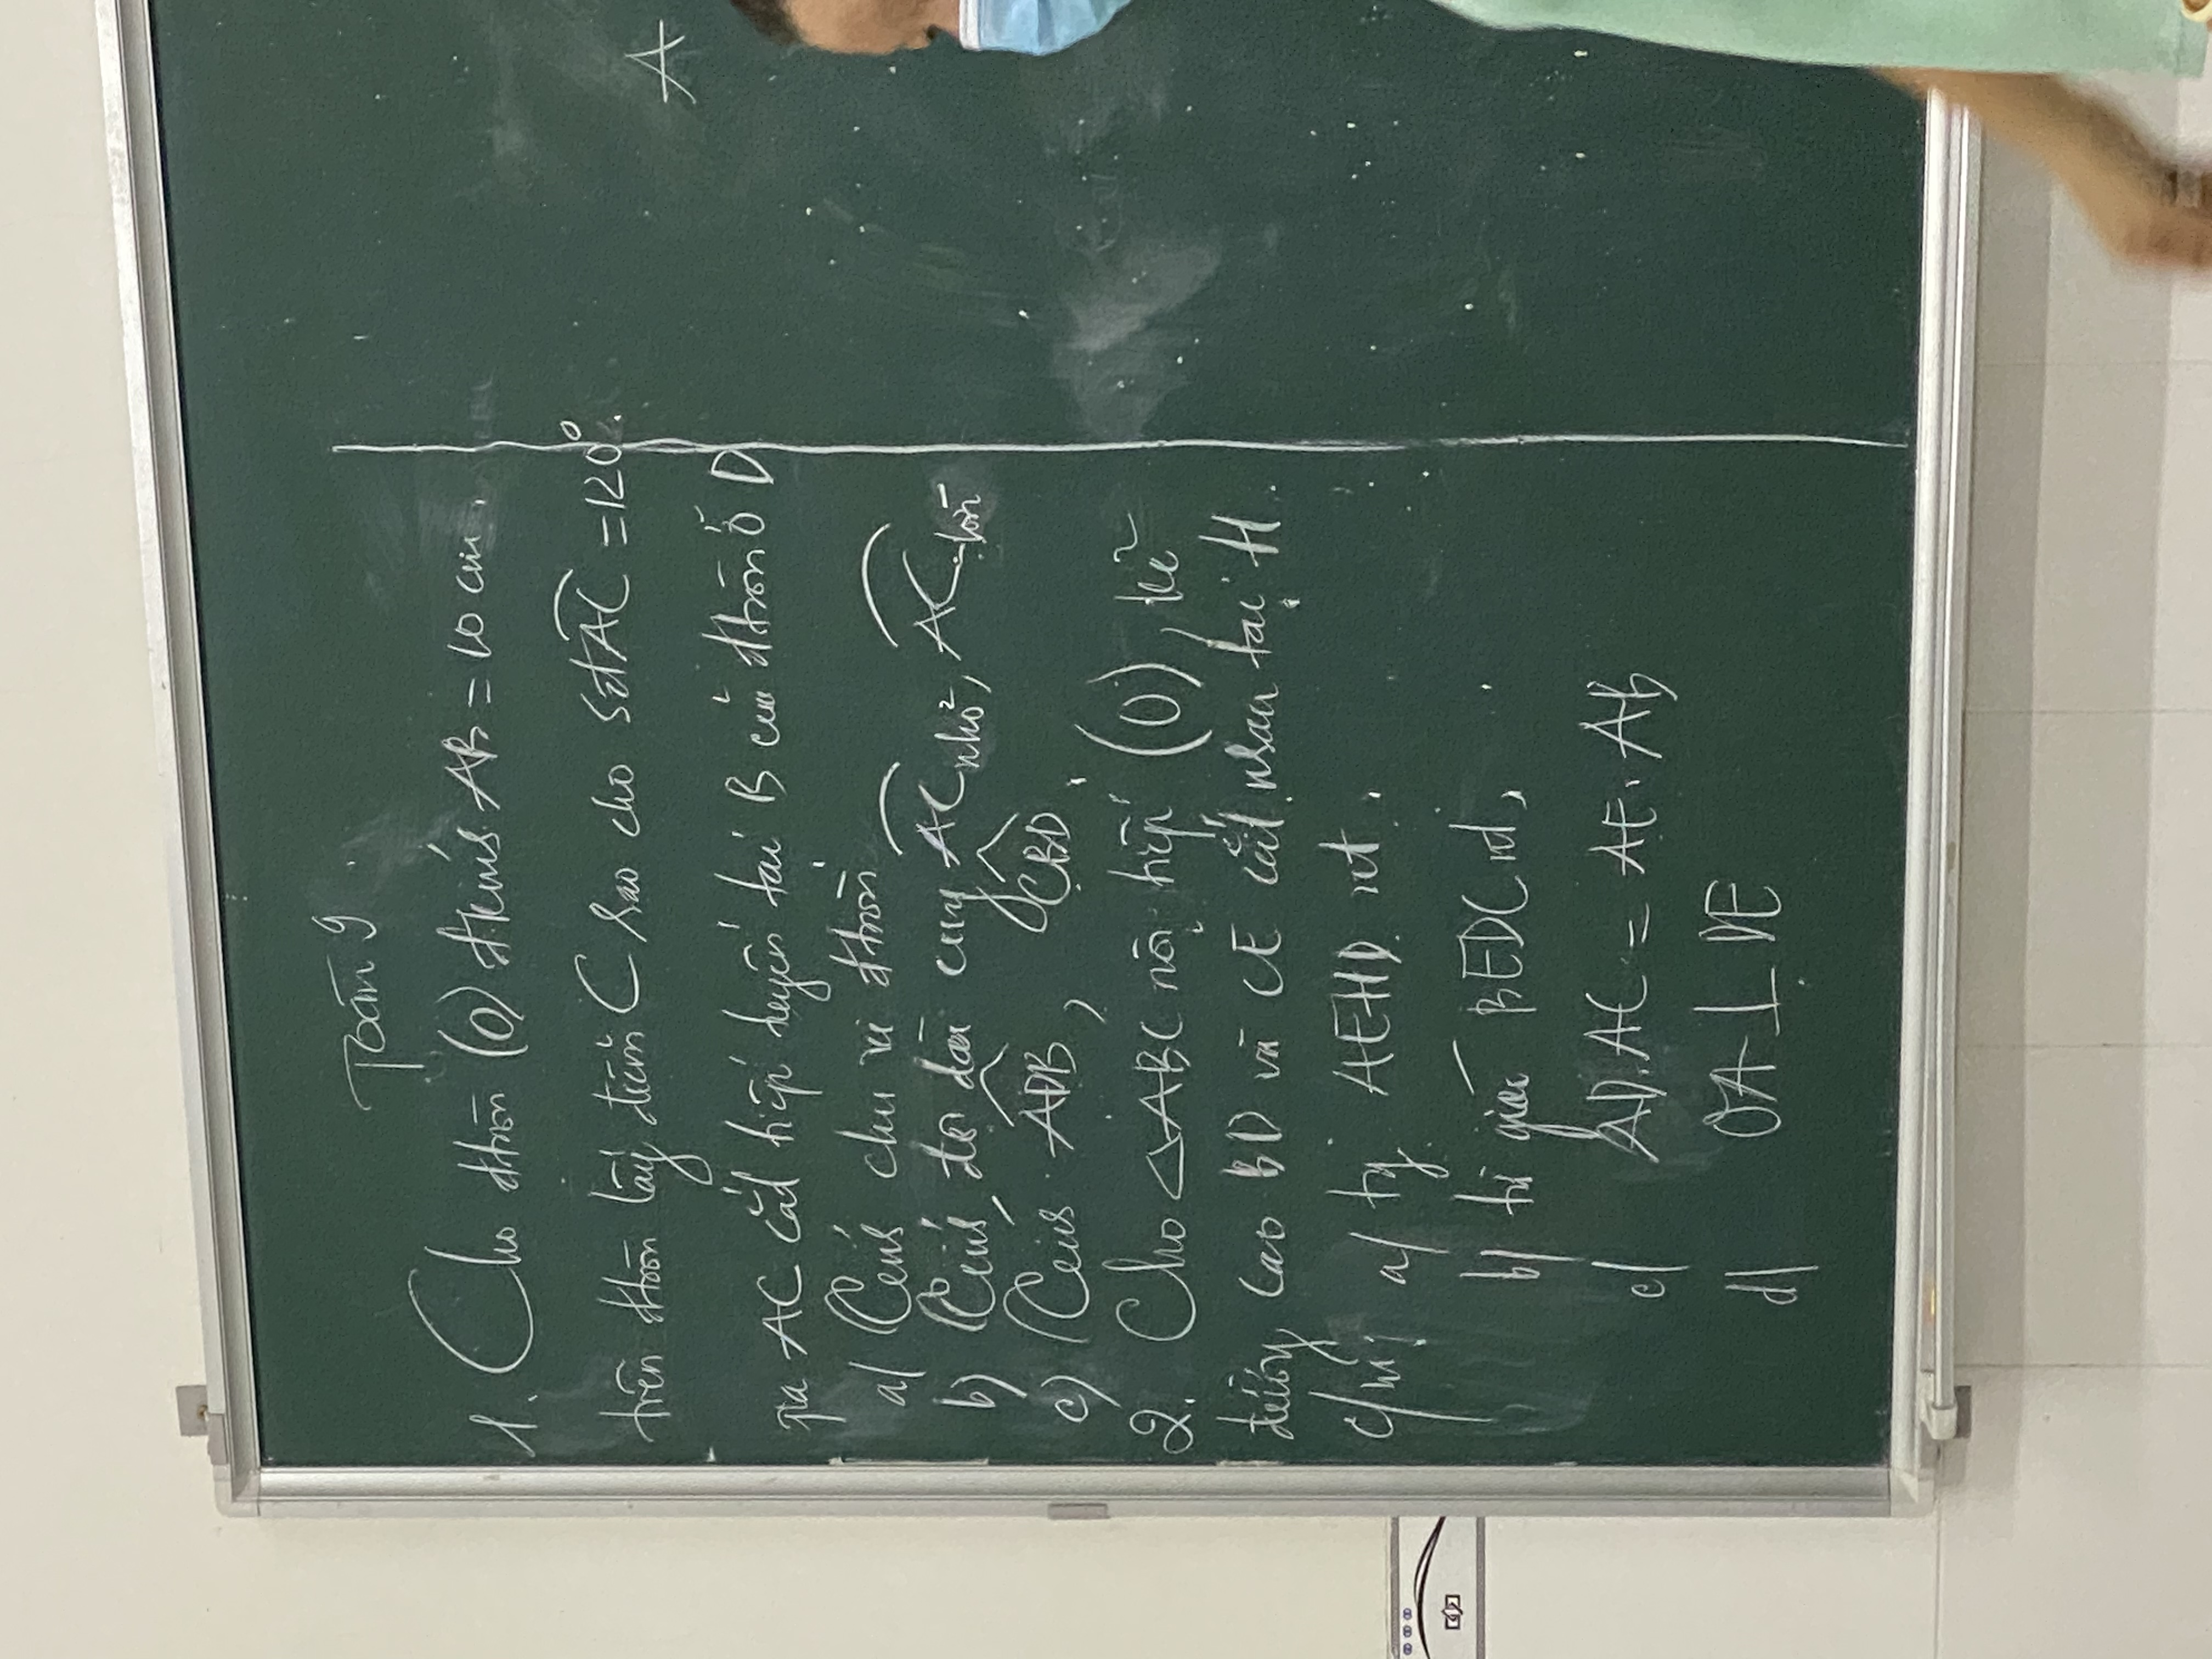 Toán 9
1. Cho đtròn (O) đkính AB = 10 cm.
trên đtròn lấy điểm C sao cho sđAC = 120°.
qua AC cắt tiếp tuyến tại B của đtròn ở D
a/ Tính chu vi đtròn
b) Tính độ dài cung AC nhỏ, AC lớn
c) Tính ADB, CBD.
2. Cho △ABC nội tiếp (O), kẻ
đường cao BD và CE cắt nhau tại H.
c/m: a/ tg AEHD nt.
b/ tứ giác BEDC nt,
c/ AD.AC = AE.AB
d/ OA ⊥ DE
A